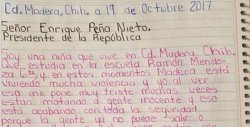 Cd. Madera, Chih. a 19 de Octubre 2017
Señor Enrique Peña Nieto.
Presidente de la República
Soy una niña que vive en Cd. Madera Chih.
Que estudia en la escuela Ramón Mendo-
za 6to, y en estos momentos Madera está
viviendo mucha violencia y al ver
eso me pone muy triste muchas veces
estan matando a gente inocente y eso
está acabando con toda la seguridad.
porque la gente ya no puede salir o